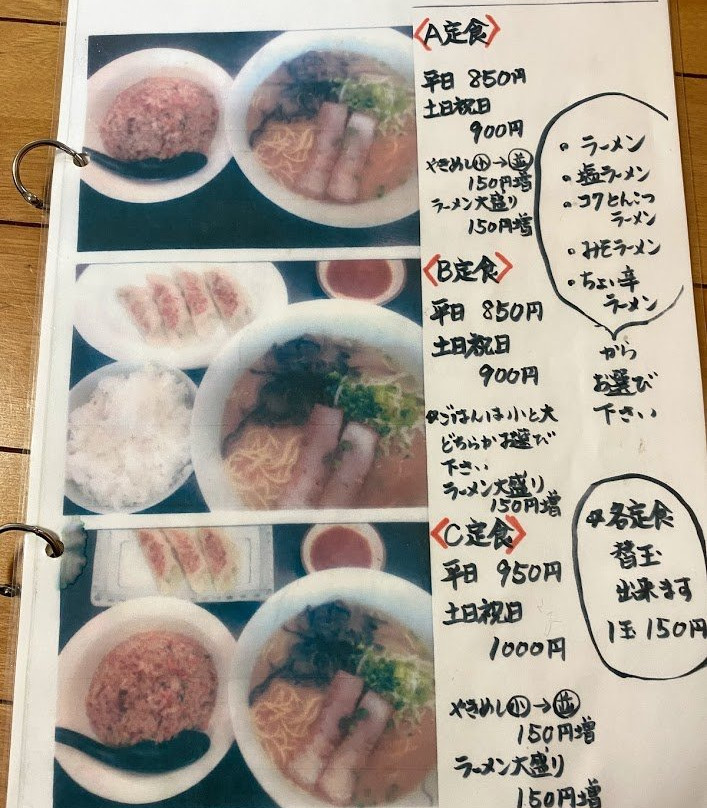 〈A定食〉
平日 850円
土日祝日
900円
やきめし小→並
150円増
ラーメン大盛り
150円増
〈B定食〉
平日 850円
土日祝日
900円
☆ごはんは小と大
どちらかお選び
下さい
ラーメン大盛り
150円増
〈C定食〉
平日 950円
土日祝日
1000円
やきめし小→並
150円増
ラーメン大盛り
150円増
・ラーメン
・塩ラーメン
・コクとんこつ
ラーメン
・みそラーメン
・ちょい辛
ラーメン
から
お選び
下さい
☆各定食
替玉
出来ます
1玉150円